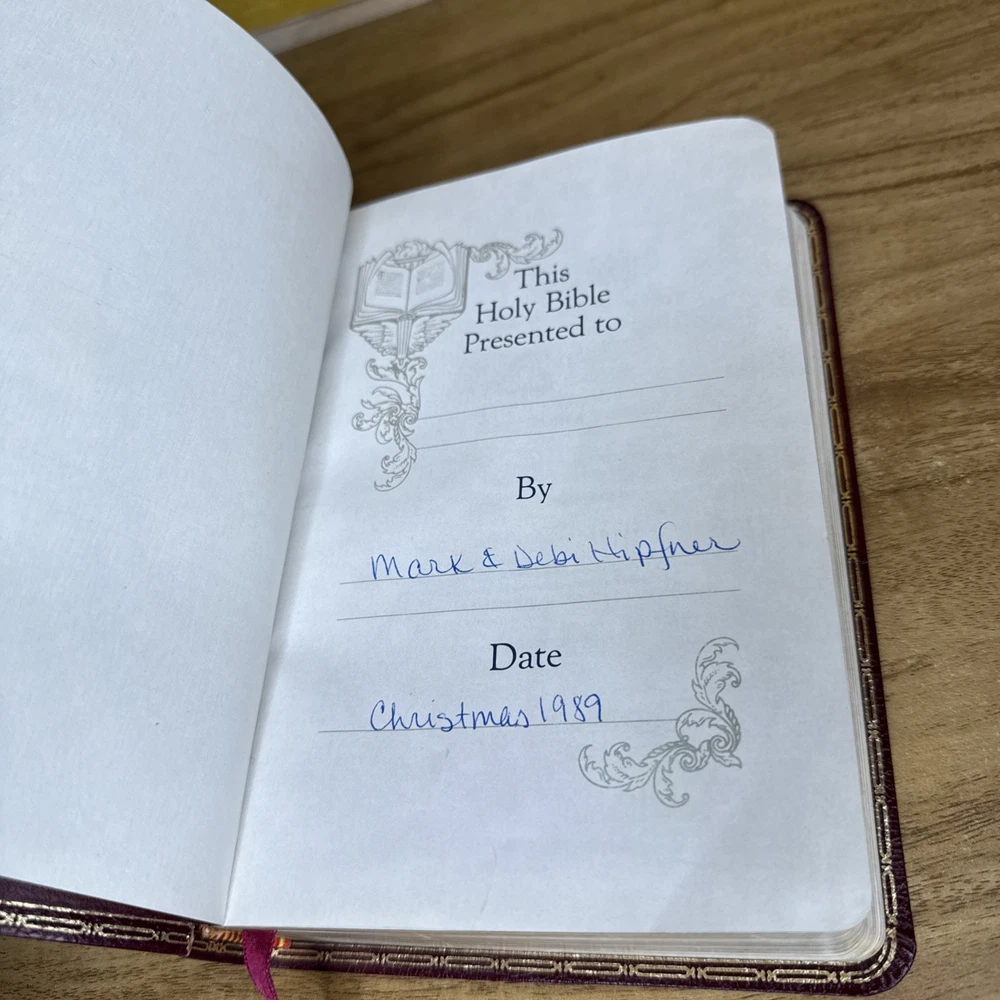 This
Holy Bible
Presented to
By
Mark & Debi Hipfner
Date
Christmas 1989